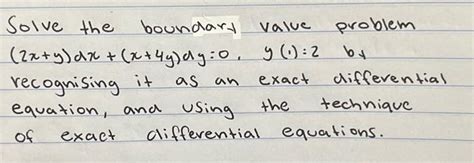 Solve the boundary value problem
(2x+y)dx + (x+4y)dy=0, y(1):2 by
recognising it as an exact differential
equation, and using the technique
of exact differential equations.